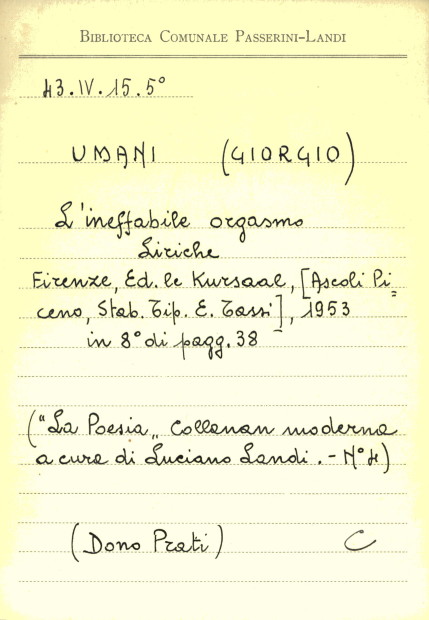 BIBLIOTECA COMUNALE PASSERINI-LANDI
43.IV.15.5°
UMANI (GIORGIO)
L'ineffabile orgasmo
Liriche
Firenze, Ed. le Kursaal, [Ascoli Pi=
ceno, Stab. Tip. E. Tassi], 1953
in 8° di pagg. 38
("La Poesia„ Collanan moderna
a cura di Luciano Landi. - N° 4)
(Dono Prati) C